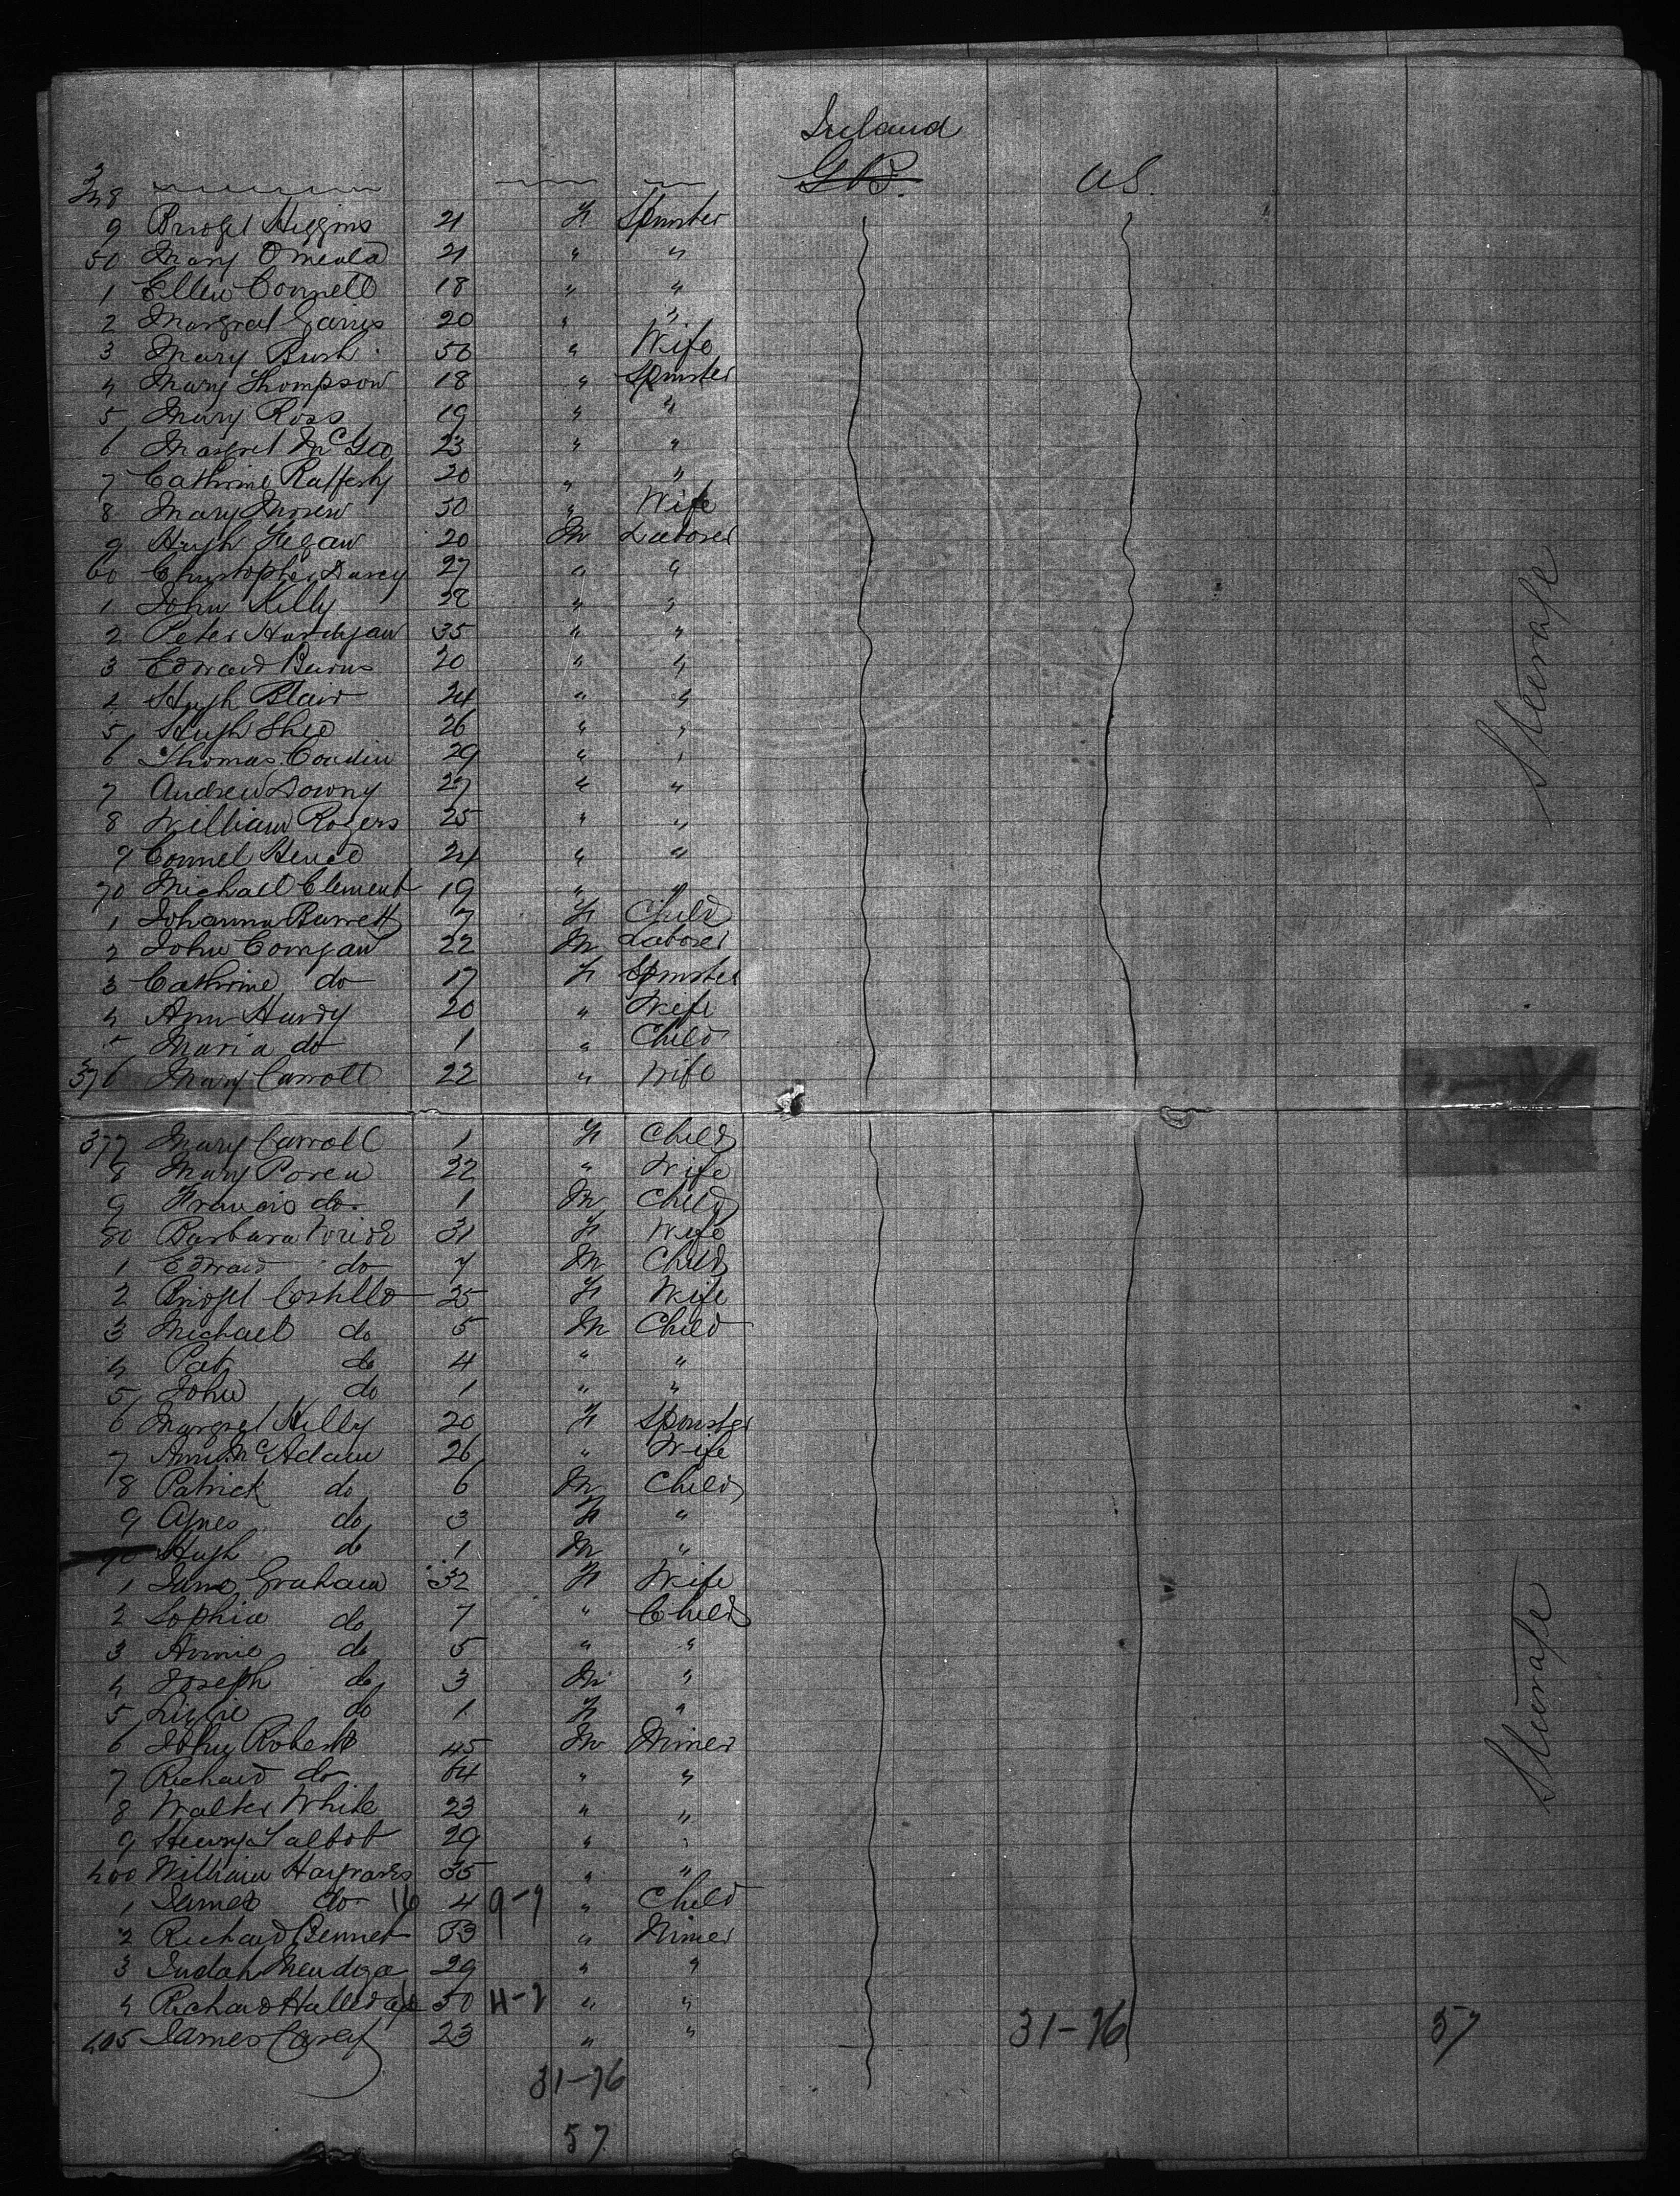 Ireland
348 G.B. U.S.
9 Bridget Higgins 21 F Spinster
50 Mary Omeala 21 " "
1 Ellen Connell 18 " "
2 Margret 20 " "
3 Mary Bush 50 " Wife
4 Mary Thompson 18 " Spinster
5 Mary Ross 19 " "
6 Margret McGeo 23 " "
7 Cathrine Rafferty 20 " "
8 Mary 30 " Wife
9 Hugh Fegan 20 M Laborer
60 Christopher Darcy 27 " "
1 John Kelly 28 " "
2 Peter 35 " "
3 Edward Burns 20 " "
4 Hugh Blair 24 " "
5 Hugh Shea 26 " "
6 Thomas Condin 29 " "
7 Andrew Downy 27 " "
8 William Rogers 25 " "
9 Connel 24 " "
70 Michael Clement 19 " "
1 Johanna Barrett 7 F Child
2 John Corrigan 22 M Laborer
3 Cathrine do 17 F Spinster
4 Ann Hurdy 20 " Wife
5 Maria do 1 " Child
376 Mary Carroll 22 " Wife
377 Mary Carroll 1 F Child
8 Mary 22 " Wife
9 Francis do. 1 M Child
80 Barbara 31 F Wife
1 Edward do 7 M Child
2 Bridget Costello 25 F Wife
3 Michael do 5 M Child
4 Pat do 4 " "
5 John do 1 " "
6 Margret Kelly 20 F Spinster
7 Ann McAdam 26 " Wife
8 Patrick do 6 M Child
9 Agnes do 3 F "
90 Hugh do 1 M "
1 Jane Graham 32 F Wife
2 Sophia do 7 " Child
3 Annie do 5 " "
4 Joseph do 3 M "
5 Lizzie do 1 F "
6 John Roberts 45 M Miner
7 Richard do 64 " "
8 Walter White 23 " "
9 Henry Talbot 29 " "
400 William Hargraves 35 " "
1 James do 16 4 9-9 " Child
2 Richard Bennet 33 " Miner
3 Judah Mendoza 29 " "
4 Richard 50 11-2 " "
405 James Carey 23 " "
31-76 57
31-76
57
Steerage
Steerage